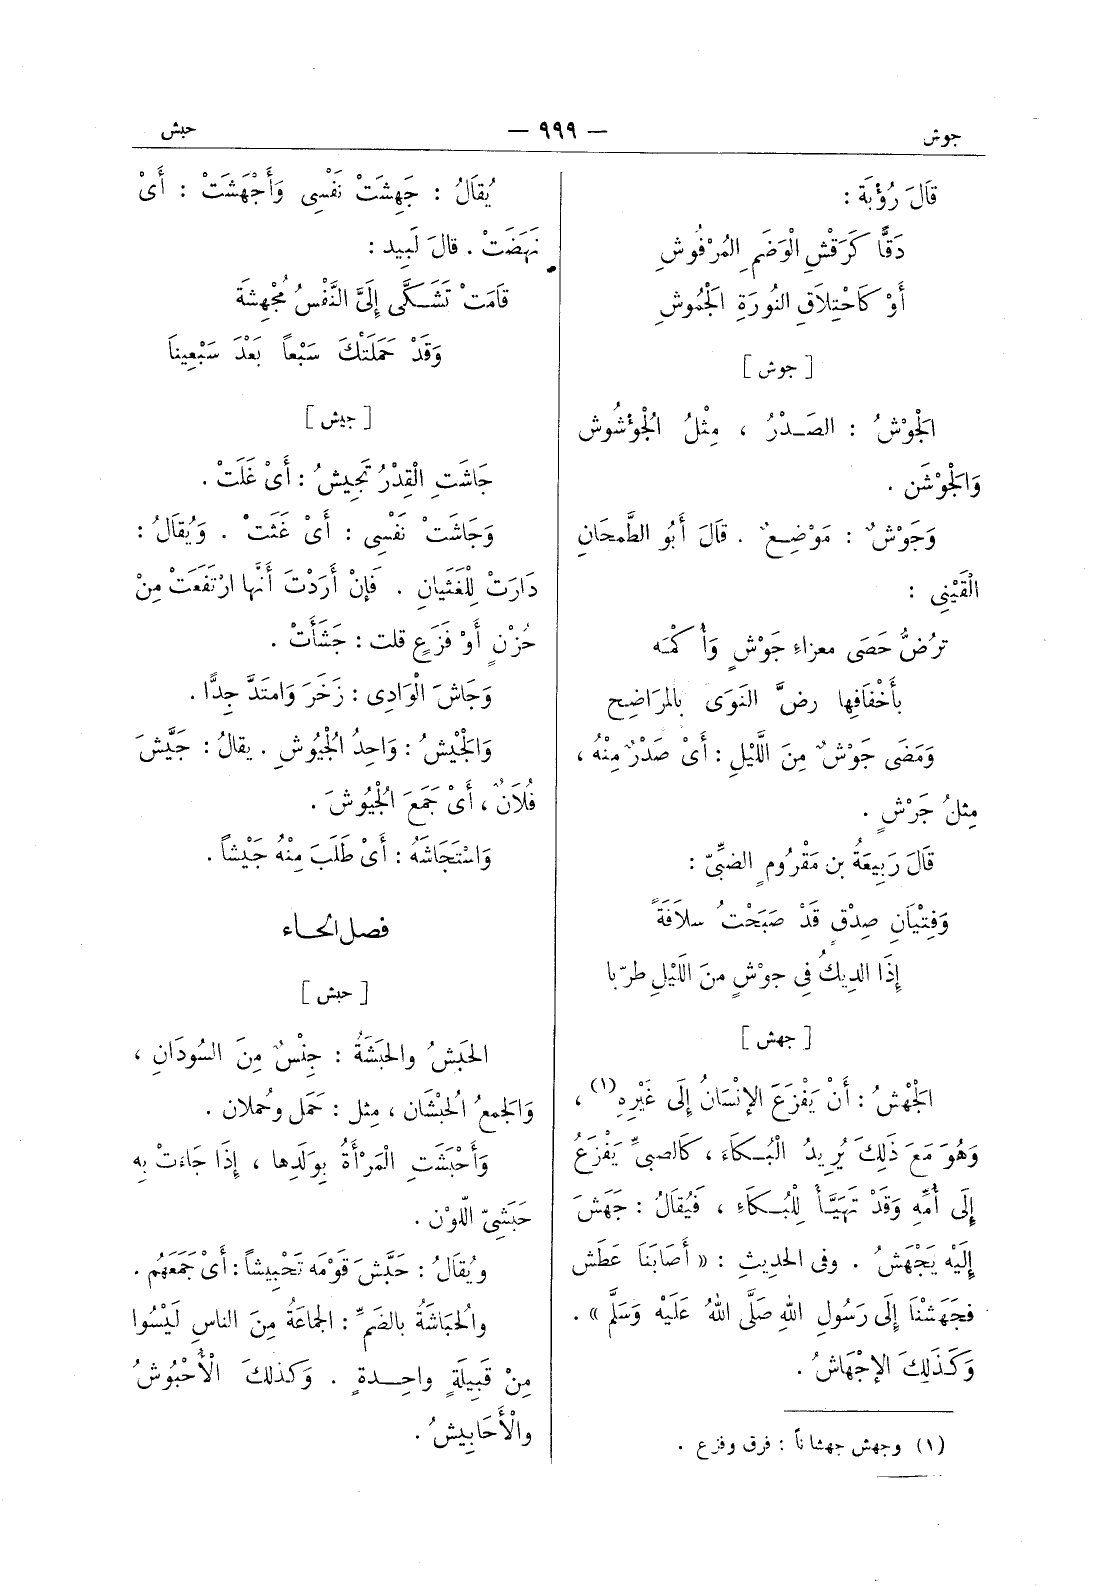 جوش — ٩٩٩ — حبش
قَالَ رُؤْبَة :
دَقًّا كَرَقْشِ الْوَضَمِ المُرْفُوشِ
أَوْ كَاحْتِلاَقِ النُورَةِ الْجُمُوشِ
[ جوش ]
الْجَوْشُ : الصَـدْرُ ، مِثْلُ الْجُؤْشُوش
وَالْجَوْشَن .
وَجَوْشٌ : مَوْضِعٌ . قَالَ أَبُو الطَّمَحَانِ
الْقَيْنِى :
ترُضُّ حَصَى معزاءِ جَوْشٍ وَأُكْمَه
بأَخْفَافِها رضَّ النَوَى بالمرَاضِحِ
وَمَضَى جَوْشٌ مِنَ اللَّيلِ : أَىْ صَدْرٌ مِنْهُ ،
مِثلُ جَرْشٍ .
قَالَ رَبِيعَةُ بن مَقْرُومٍ الضبِّىّ :
وَفِتْيَانِ صِدْقٍ قَدْ صَبَحْتُ سلاَفَةً
إِذَا الدِيكُ فِى جوْشٍ منَ اللَيْلِ طرّبا
[ جهش ]
الْجَهْشُ : أَنْ يَفْزَعَ الإنْسَانُ إِلَى غَيْرِهِ (١) ،
وَهُوَ مَعَ ذَلِكَ يُرِيدُ الْبُـكَاءَ ، كَالصبىِّ يَفْزَعُ
إِلَى أُمِّهِ وَقَدْ تَهَيَّأَ لِلْبُـكَاءِ ، فَيُقَالُ : جَهَشَ
إِلَيْه يَجْهَشُ . وفى الحديثِ : « أَصَابَنَا عَطَش
فجَهَشْنَا إِلَى رَسُولِ اللهِ صَلَّى اللهُ عَلَيْه وَسَلَّم » .
وَكَذَلِكَ الإجْهَاشُ .
(١) وجهش جهشاناً : فرق وفزع .
يُقَالُ : جَهِشَتْ نَفْسِى وَأَجْهَشَتْ : أَىْ
نَهَضَتْ . قالَ لَبِيد :
قَامَتْ تَشَـكَّى إِلَىَّ النَّفْسُ مُجْهِشَةً
وَقَدْ حَمَلَتْكَ سَبْعاً بَعْدَ سَبْعِينَا
[ جيش ]
جَاشَتِ الْقِدْرُ تَجِيشُ : أَىْ غَلَتْ .
وَجَاشَتْ نَفْسِى : أَىْ غَثَتْ . وَيُقَالُ :
دَارَتْ لِلْغَثَيانِ . فَإنْ أَرَدْتَ أَنَّها ارْتَفَعَتْ مِنْ
حُزْنٍ أَوْ فَزَعٍ قلت : جَشَأَتْ .
وَجَاشَ الْوَادِى : زَخَرَ وَامتَدَّ جِدًّا .
وَالْجَيْشُ : وَاحِدُ الْجُيُوشِ . يقالُ : جَيَّشَ
فُلاَنٌ ، أَىْ جَمَعَ الْجُيُوشَ .
وَاسْتَجَاشَهُ : أَىْ طَلَبَ مِنْهُ جَيْشاً .
فصل الحـاء
[ حبش ]
الحَبَشُ والحَبَشَةُ : جِنْسٌ مِنَ السُودَانِ ،
وَالجمعُ الْحُبْشَان ، مِثل : حَمَل وحُملان .
وَأَحْبَشَتِ الْمَرْأَةُ بِوَلَدِها ، إِذَا جَاءَتْ بِه
حَبَشِىّ اللّوْن .
ويُقَالُ : حَبَّشَ قَوْمَه تَحْبِيشاً : أَىْ جَمَعَهُم .
والْحُبَاشَةُ بالضَمِّ : الجَماعَةُ مِنَ الناسِ لَيْسُوا
مِنْ قَبِيلَةٍ واحِـدةٍ . وَكذلكَ الْأُحْبُوشُ
والْأَحَابِيشُ .